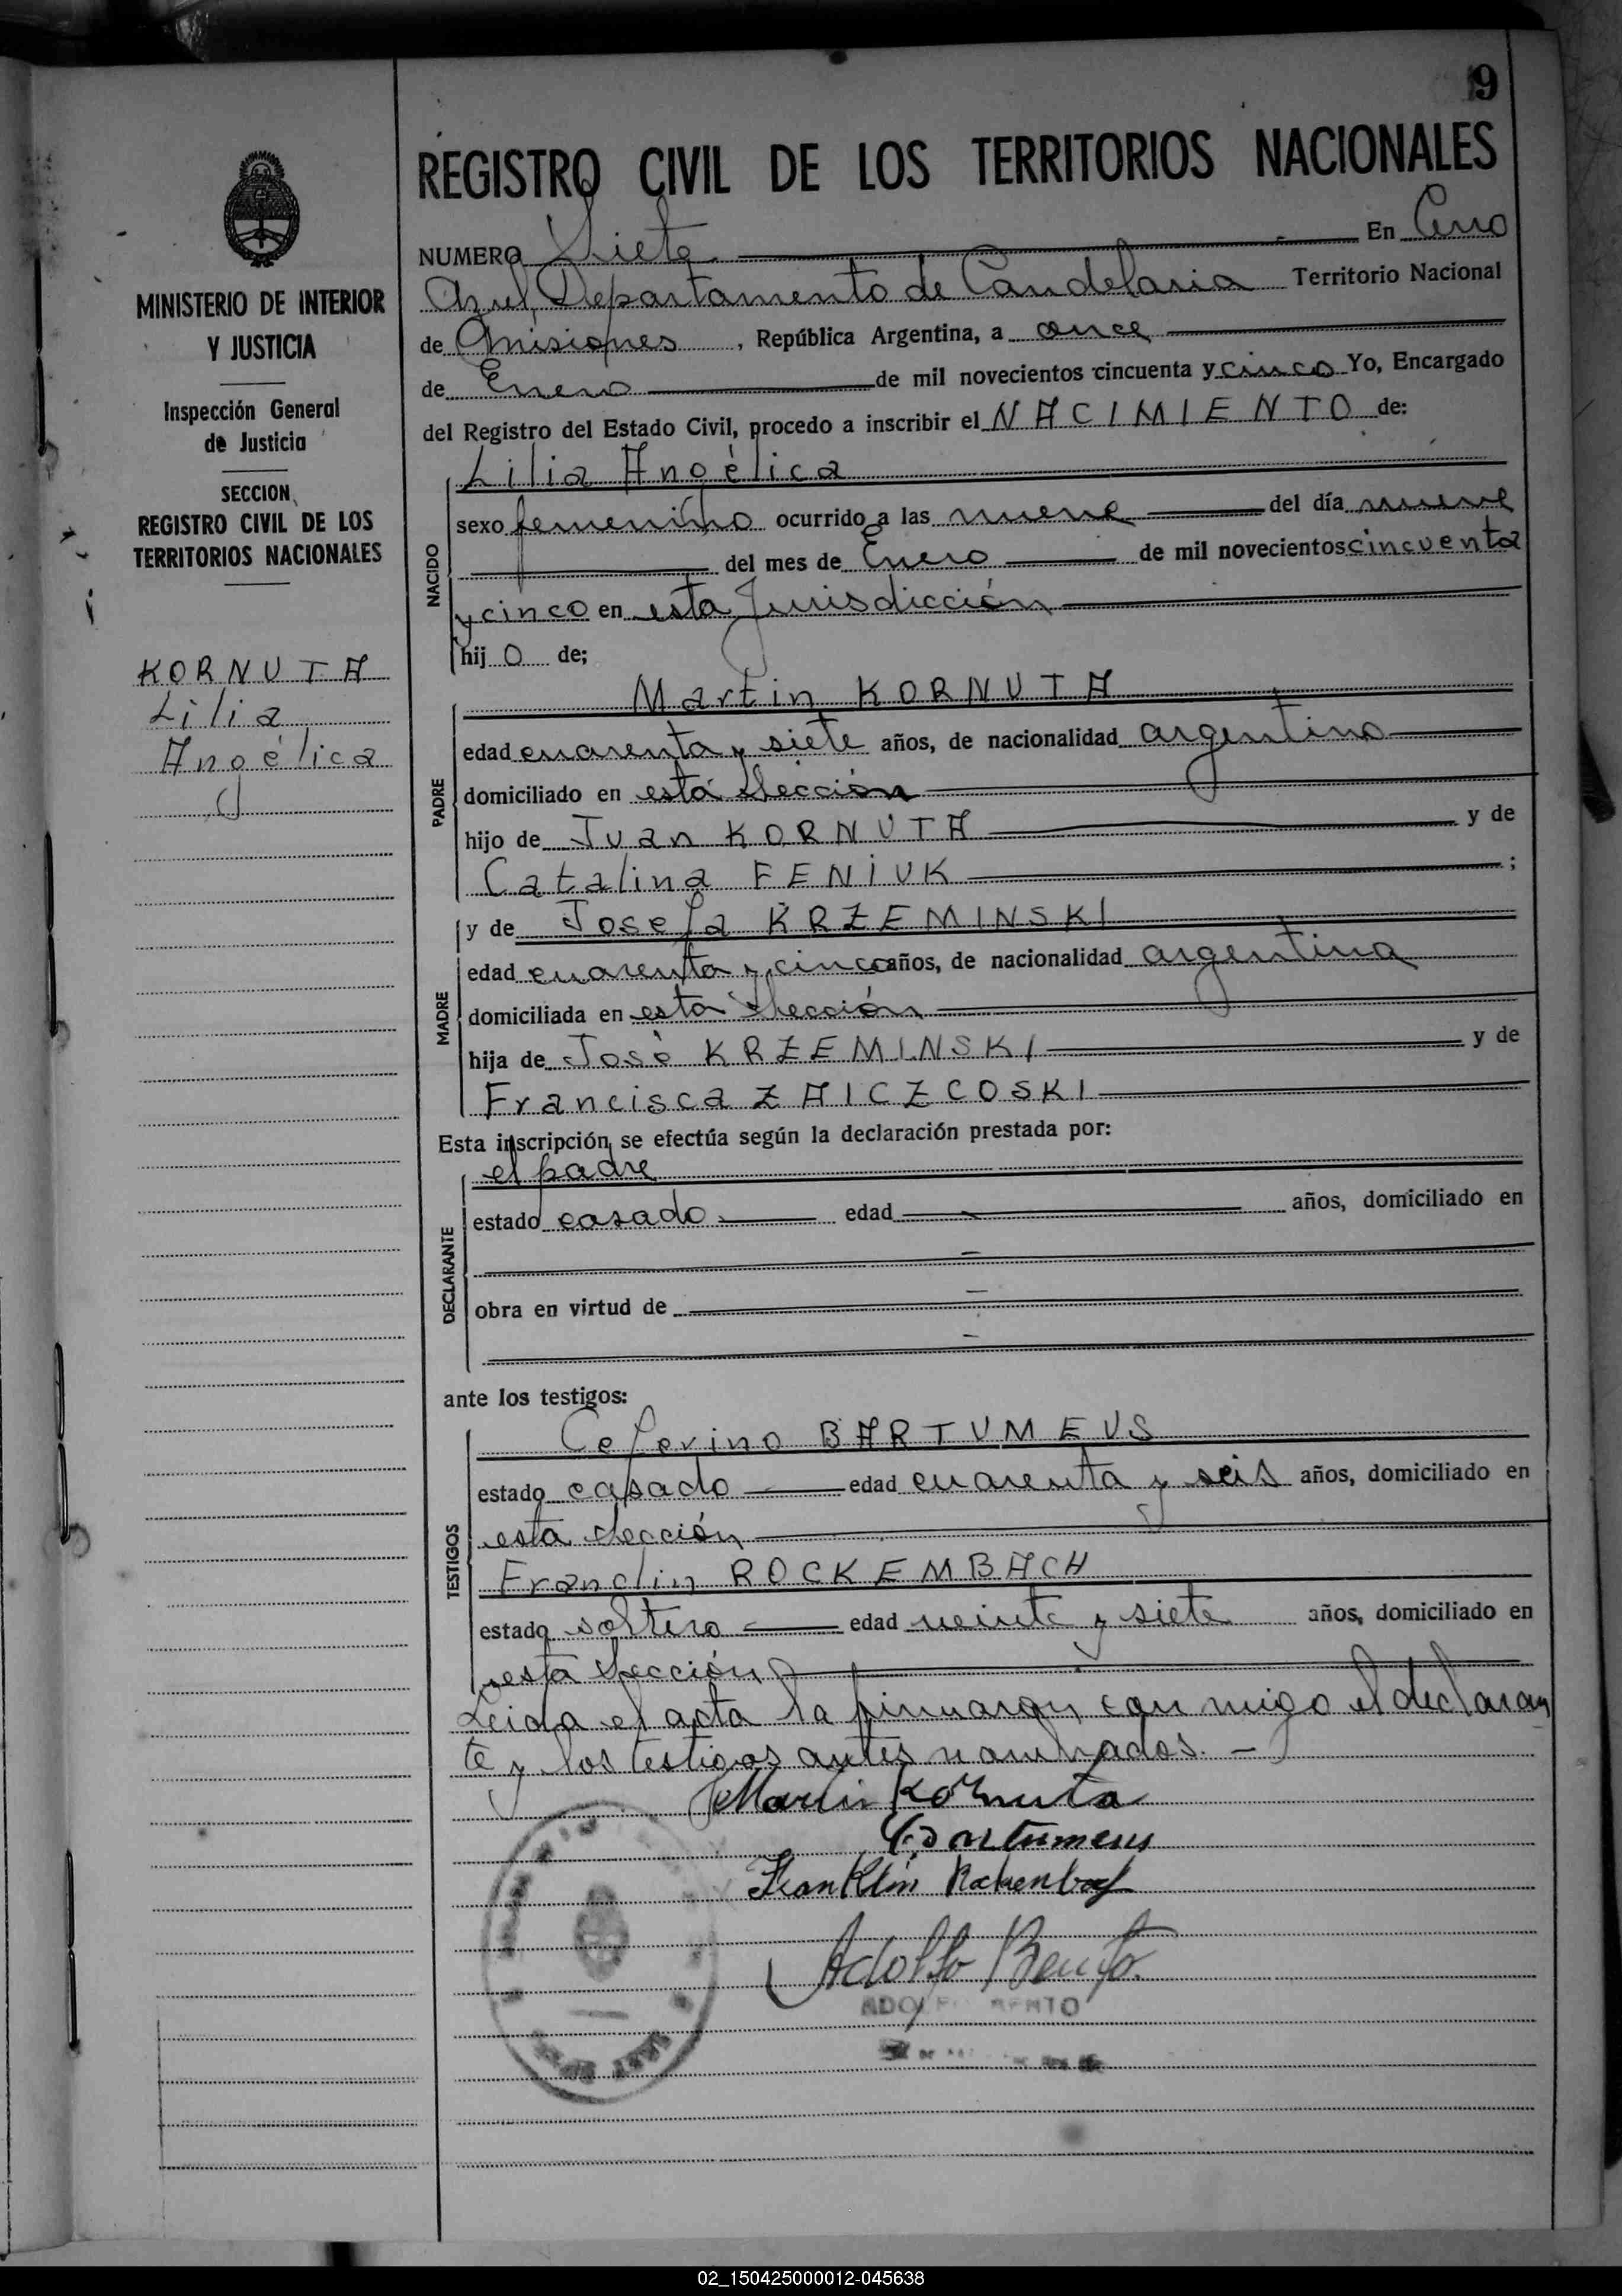 9
REGISTRO CIVIL DE LOS TERRITORIOS NACIONALES
NUMERO Siete En Cerro
Azul, Departamento de Candelaria Territorio Nacional
de Misiones, República Argentina, a once
de Enero de mil novecientos cincuenta y cinco Yo, Encargado
del Registro del Estado Civil, procedo a inscribir el NACIMIENTO de:
MINISTERIO DE INTERIOR
Y JUSTICIA
Inspección General
de Justicia
SECCION
REGISTRO CIVIL DE LOS
TERRITORIOS NACIONALES
KORNUTA
Lilia
Angélica
NACIDO
Lilia Angélica
sexo femenino ocurrido a las nueve del día nueve
del mes de Enero de mil novecientos cincuenta
y cinco en esta Jurisdicción
hij o de;
PADRE
Martin KORNUTA
edad cuarenta y siete años, de nacionalidad argentino
domiciliado en está Sección
hijo de Juan KORNUTA y de
Catalina FENIUK ;
MADRE
y de Josefa KRZEMINSKI
edad cuarenta y cinco años, de nacionalidad argentina
domiciliada en esta Sección
hija de José KRZEMINSKI y de
Francisca ZAICZCOSKI
Esta inscripción se efectúa según la declaración prestada por:
DECLARANTE
el padre
estado casado edad años, domiciliado en
obra en virtud de
ante los testigos:
TESTIGOS
Ceferino BARTUMEUS
estado casado edad cuarenta y seis años, domiciliado en
esta Sección
Franclin ROCKEMBACH
estado soltero edad veinte y siete años, domiciliado en
esta Sección
Leida el acta la firmaron con migo el declaran
te y los testigos antes nombrados. -
Martin Kornuta
C. Bartumeus
Franklin Rockenbach
Adolfo Bento
ADOLFO BENTO
02_150425000012-045638